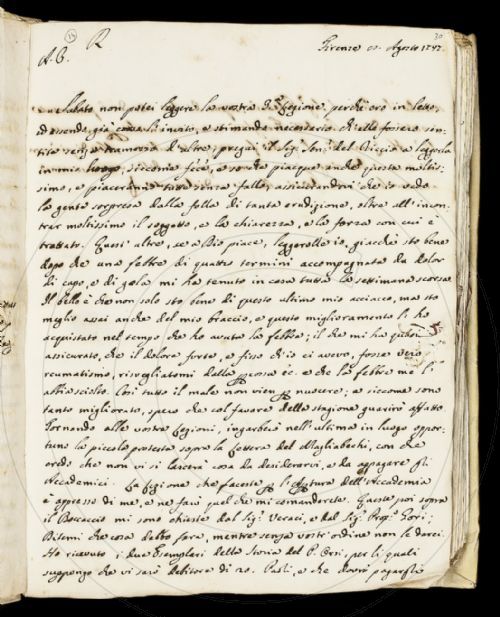 30
A. C. R
Firenze Agosto 1747
Sabato non potei leggere la vostra Lezione, perchè ero in letto,
ed essendo già corso l'invito, e stimando necessario ch'ella fosse sen-
tita senza tramandarla ad altre, pregai il Sig. del Riccio a leggerla
in mio luogo, siccome fece, e so che piacque anche questa moltis-
simo, e piaceranno tutte senza fallo, assicurandovi che io vedo
la gente sorpresa dalla folla di tanta erudizione, oltre all'incon-
trar moltissimo il soggetto, e la chiarezza, e la forza con cui è
trattato. Quest'altre, se a Dio piace, leggerolle io, giacchè sto bene
dopo che una febbre di quattro termini accompagnata da dolor
di capo, e di gola mi ha tenuto in casa tutta la settimana scorsa.
Il bello è che non solo sto bene di questo ultimo mio acciacco, ma sto
meglio assai anche del mio braccio, e questo miglioramento l'ho
acquistato nel tempo che ho avuto la febbre; il che mi ha
assicurato, che il dolore forte, e fisso ch'io ci avevo, fosse vero
reumatismo, risvegliatomi dalla percossa &c. e che la febbre me l'
abbia sciolto. Così tutto il male non vien per nuocere; e siccome sono
tanto migliorato, spero che col favore della stagione guarirò affatto.
Tornando alle vostre Lezioni, ingarbai nell'ultima in luogo oppor-
tuno la piccola protesta sopra la Lettera del Magliabechi, con che
credo che non vi si lascerà cosa da desiderarvi, e da appagare gli
Accademici. La Lezione che faceste per l'apertura dell'Accademia
è appresso di me, e ne farò quel che mi comanderete. Queste poi sopra
il Boccaccio mi sono chieste dal Sig. Veraci, e dal Sig. Prop. Gori;
Ditemi che cosa debbo fare, mentre senza vostr'ordine non le darei.
Ho ricevuto i due Esemplari della Storia del P. Orsi, per li quali
suppongo che vi sarò debitore di 20. Paoli, e che dovrò pagargli